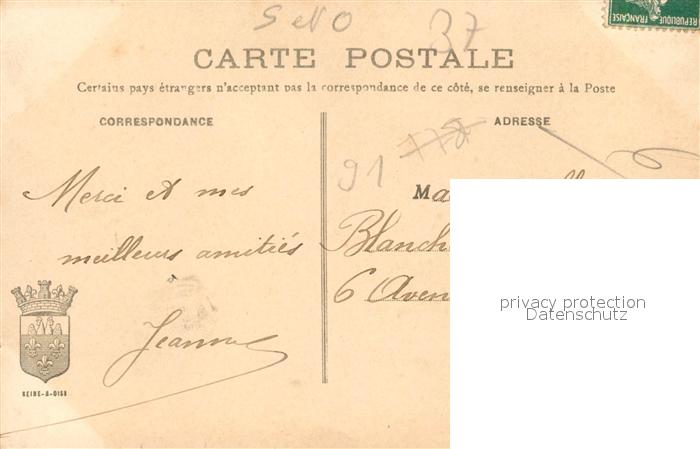 S et O
37
RÉPUBLIQUE FRANÇAISE
CARTE POSTALE
Certains pays étrangers n'acceptant pas la correspondance de ce côté, se renseigner à la Poste
CORRESPONDANCE
Merci et mes
meilleurs amitiés
Jeanne
SEINE-&-OISE
ADRESSE
91
Ma
Blanch
6 Aven
privacy protection
Datenschutz